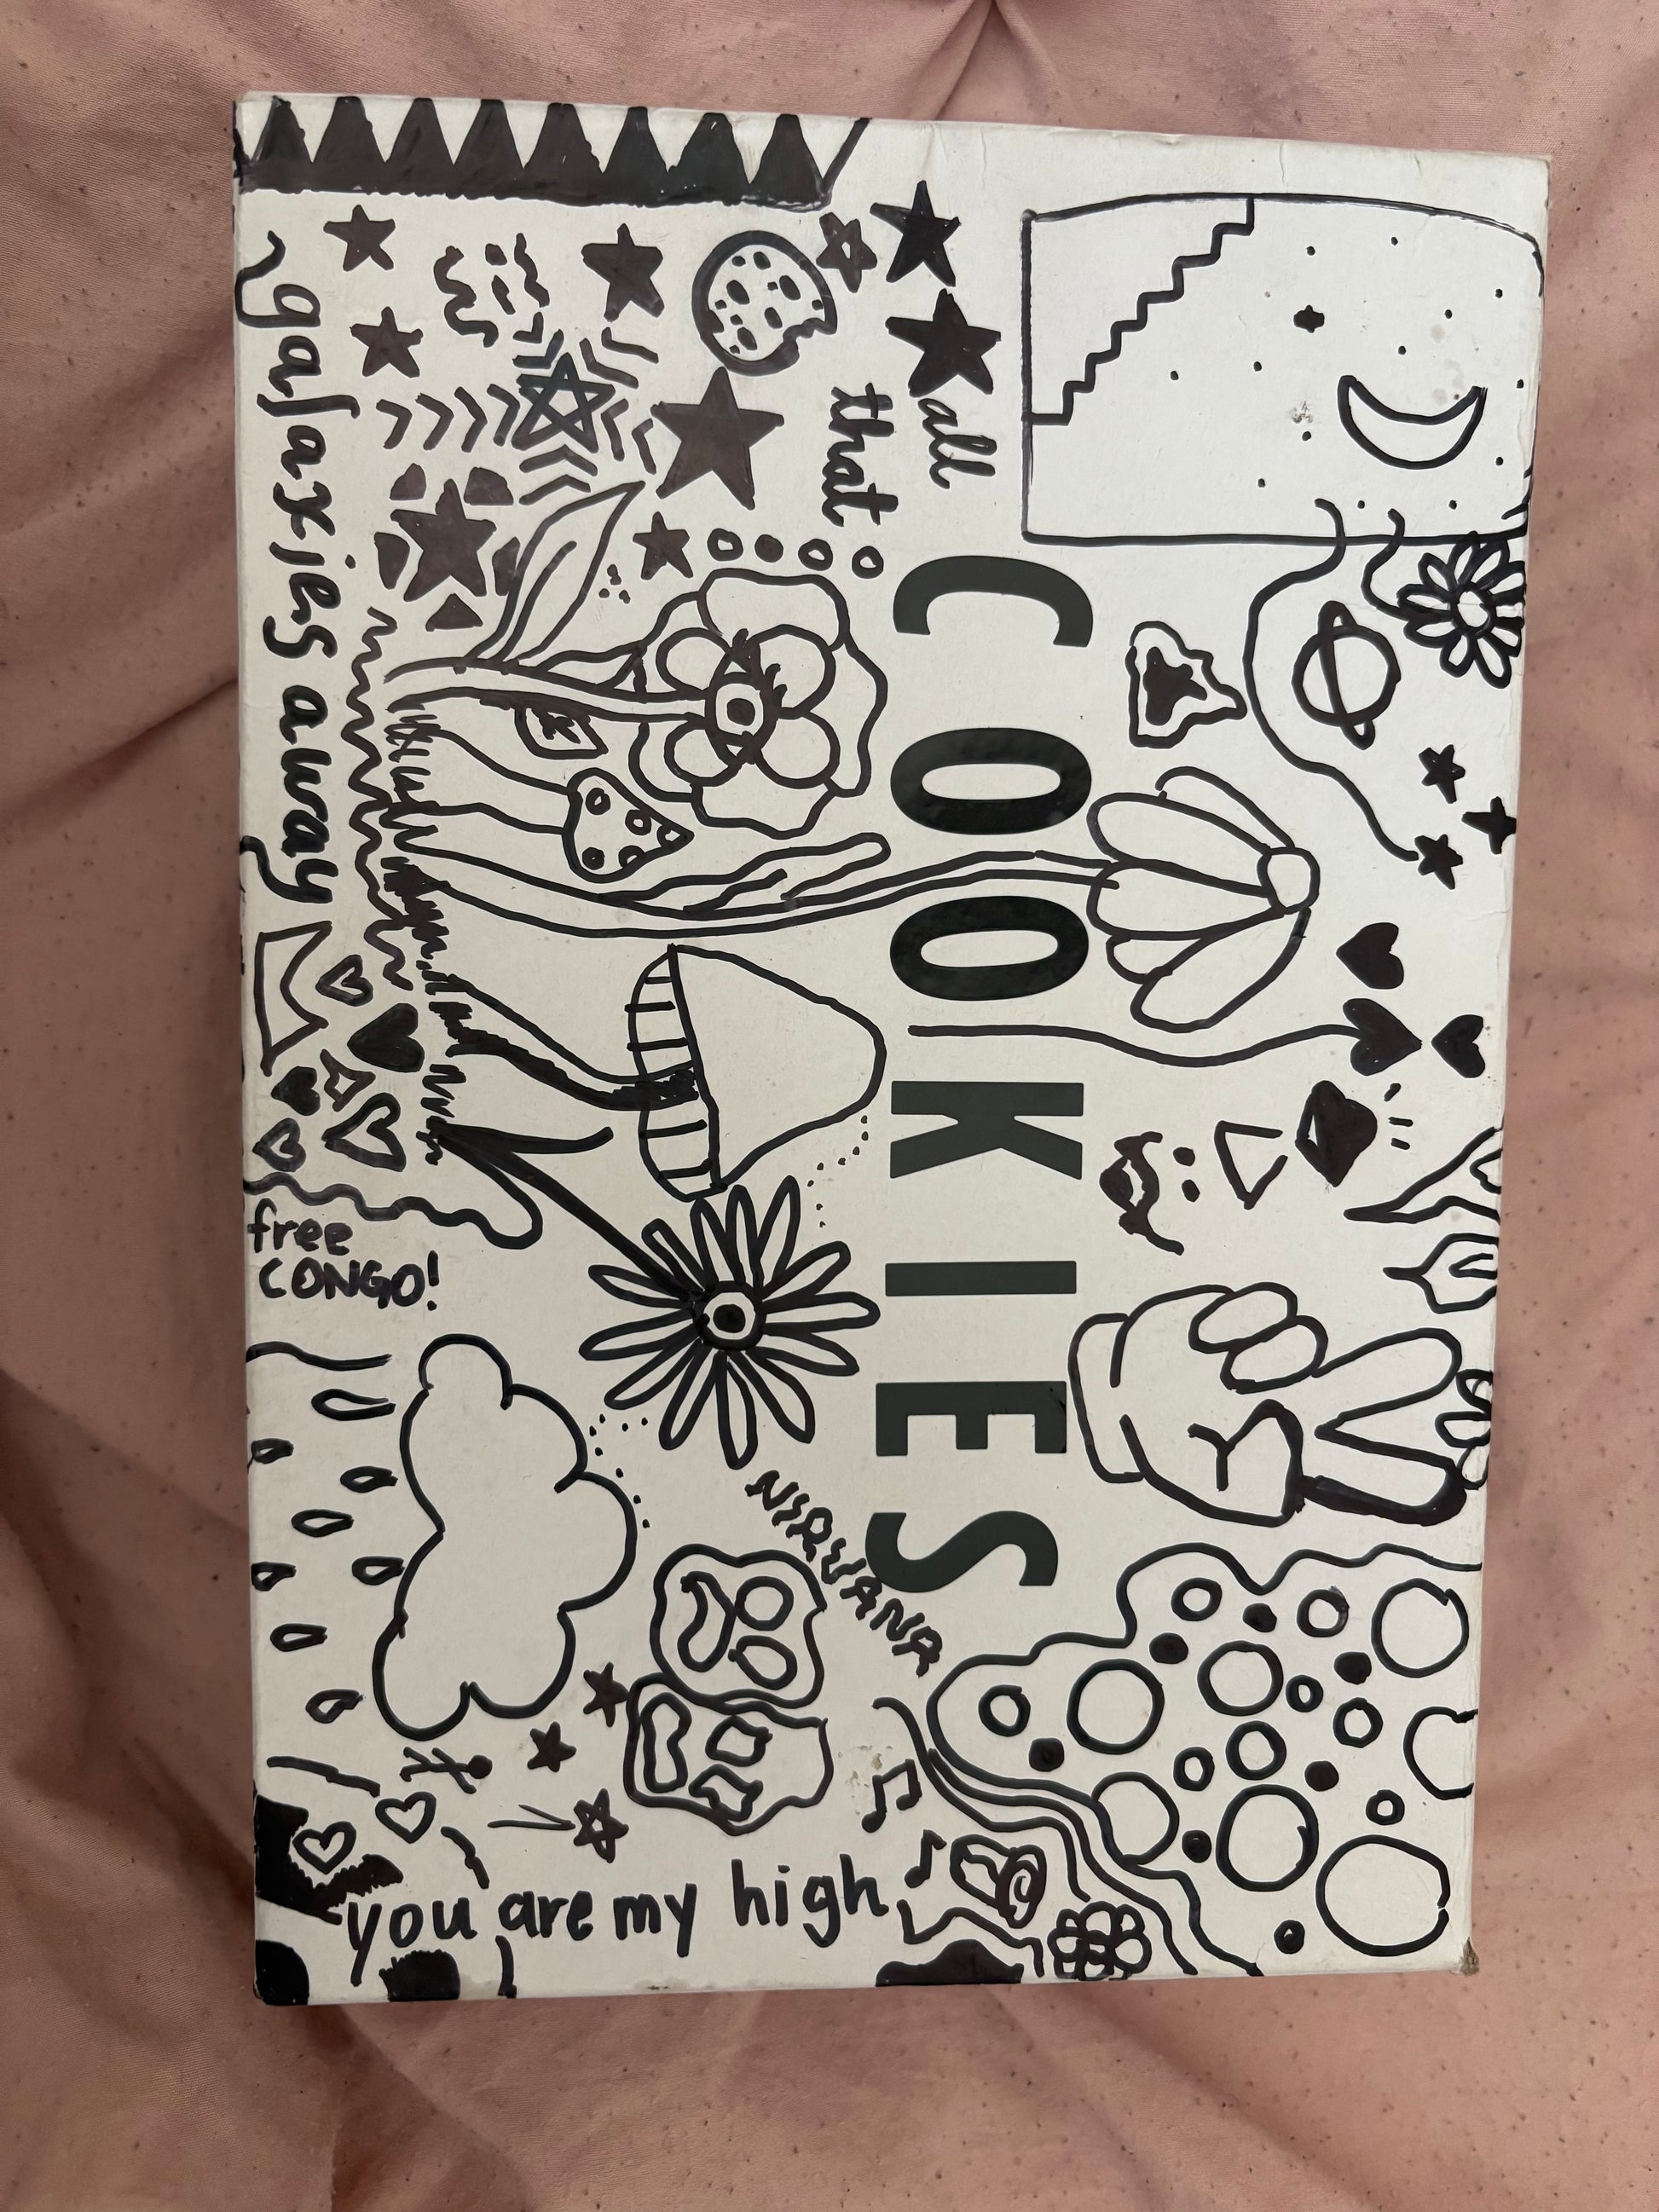 all
that
COOKIES
galaxies away
free
CONGO!
NIRVANA
you are my high